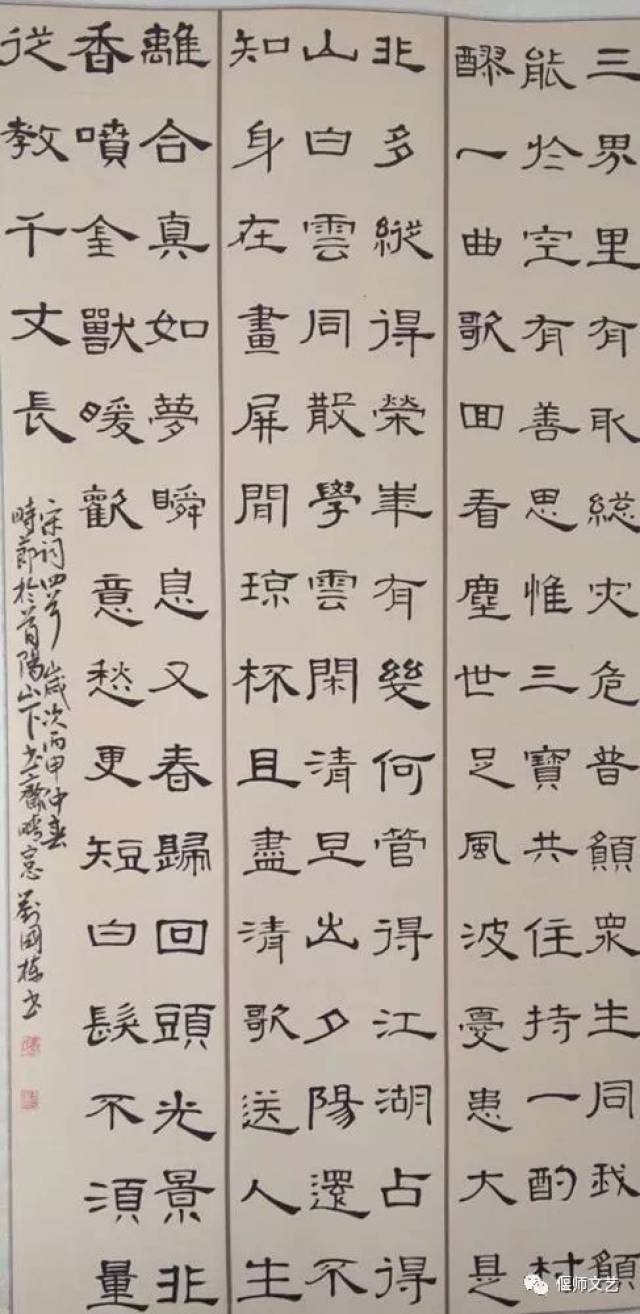 三界里有取総灾危普願衆生同我願
能於空有善思惟三寶共住持一酌村
醪一曲歌回看塵世足風波憂患大是
非多縱得榮華有幾何管得江湖占得
山白雲同散學雲閑清旦出夕陽還不
知身在畫屏間琼杯且盡清歌送人生
離合真如夢瞬息又春歸回頭光景非
香噴金獸暖歡意愁更短白髮不須量
從教千丈長
宋詞四首歲次丙申中春
時節於首陽山下書齋晴窓劉國棟書
偃师文艺